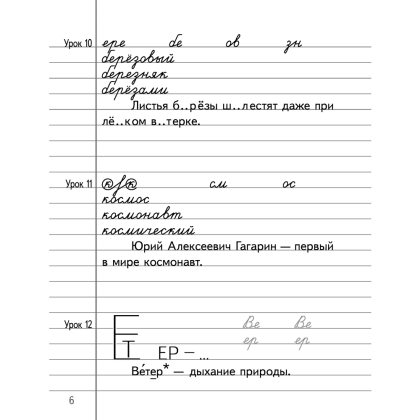 Урок 10 ере бе ов зн
берёзовый
березняк
берёзами
Листья б..рёзы ш..лестят даже при
лё..ком в..терке.
Урок 11 см ос
космос
космонавт
космический
Юрий Алексеевич Гагарин — первый
в мире космонавт.
Урок 12 Ве Ве
ер ер
Е Т ЕР – ...
Ве́тер* — дыхание природы.
6